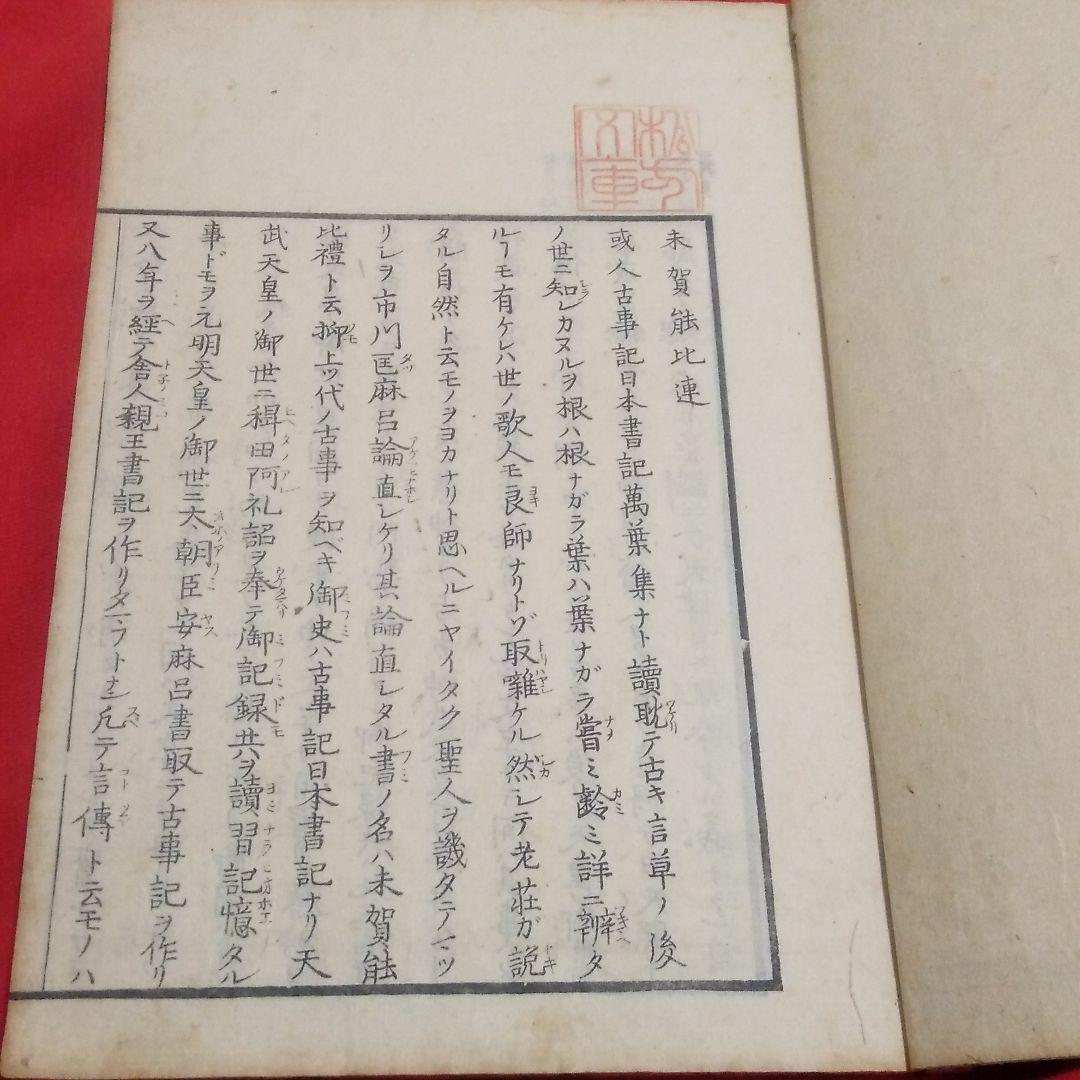 末賀能比連
或人古事記日本書記萬葉集ナト讀耽テ古キ言草ノ後
ノ世ニ知レカヌルヲ根ハ根ナガラ葉ハ葉ナガラ嘗ミ齢ミ詳ニ辨タ
ルヿモ有ケレハ世ノ歌人モ良師ナリトゾ取囃ケル然レテ老荘ガ説
タル自然ト云モノヲヨカナリト思ヘルニヤイタク聖人ヲ譏タテマツ
リレヲ市川匡麻呂論直レケリ其論直レタル書ノ名ハ末賀能
比禮ト云抑上ツ代ノ古事ヲ知ベキ御史ハ古事記日本書記ナリ天
武天皇ノ御世ニ稗田阿礼詔ヲ奉テ御記録共ヲ讀習記憶タル
事ドモヲ元明天皇ノ御世ニ太朝臣安麻呂書取テ古事記ヲ作リ
又八年ヲ經テ舎人親王書記ヲ作リタマフトナン凡テ言傳ト云モノハ